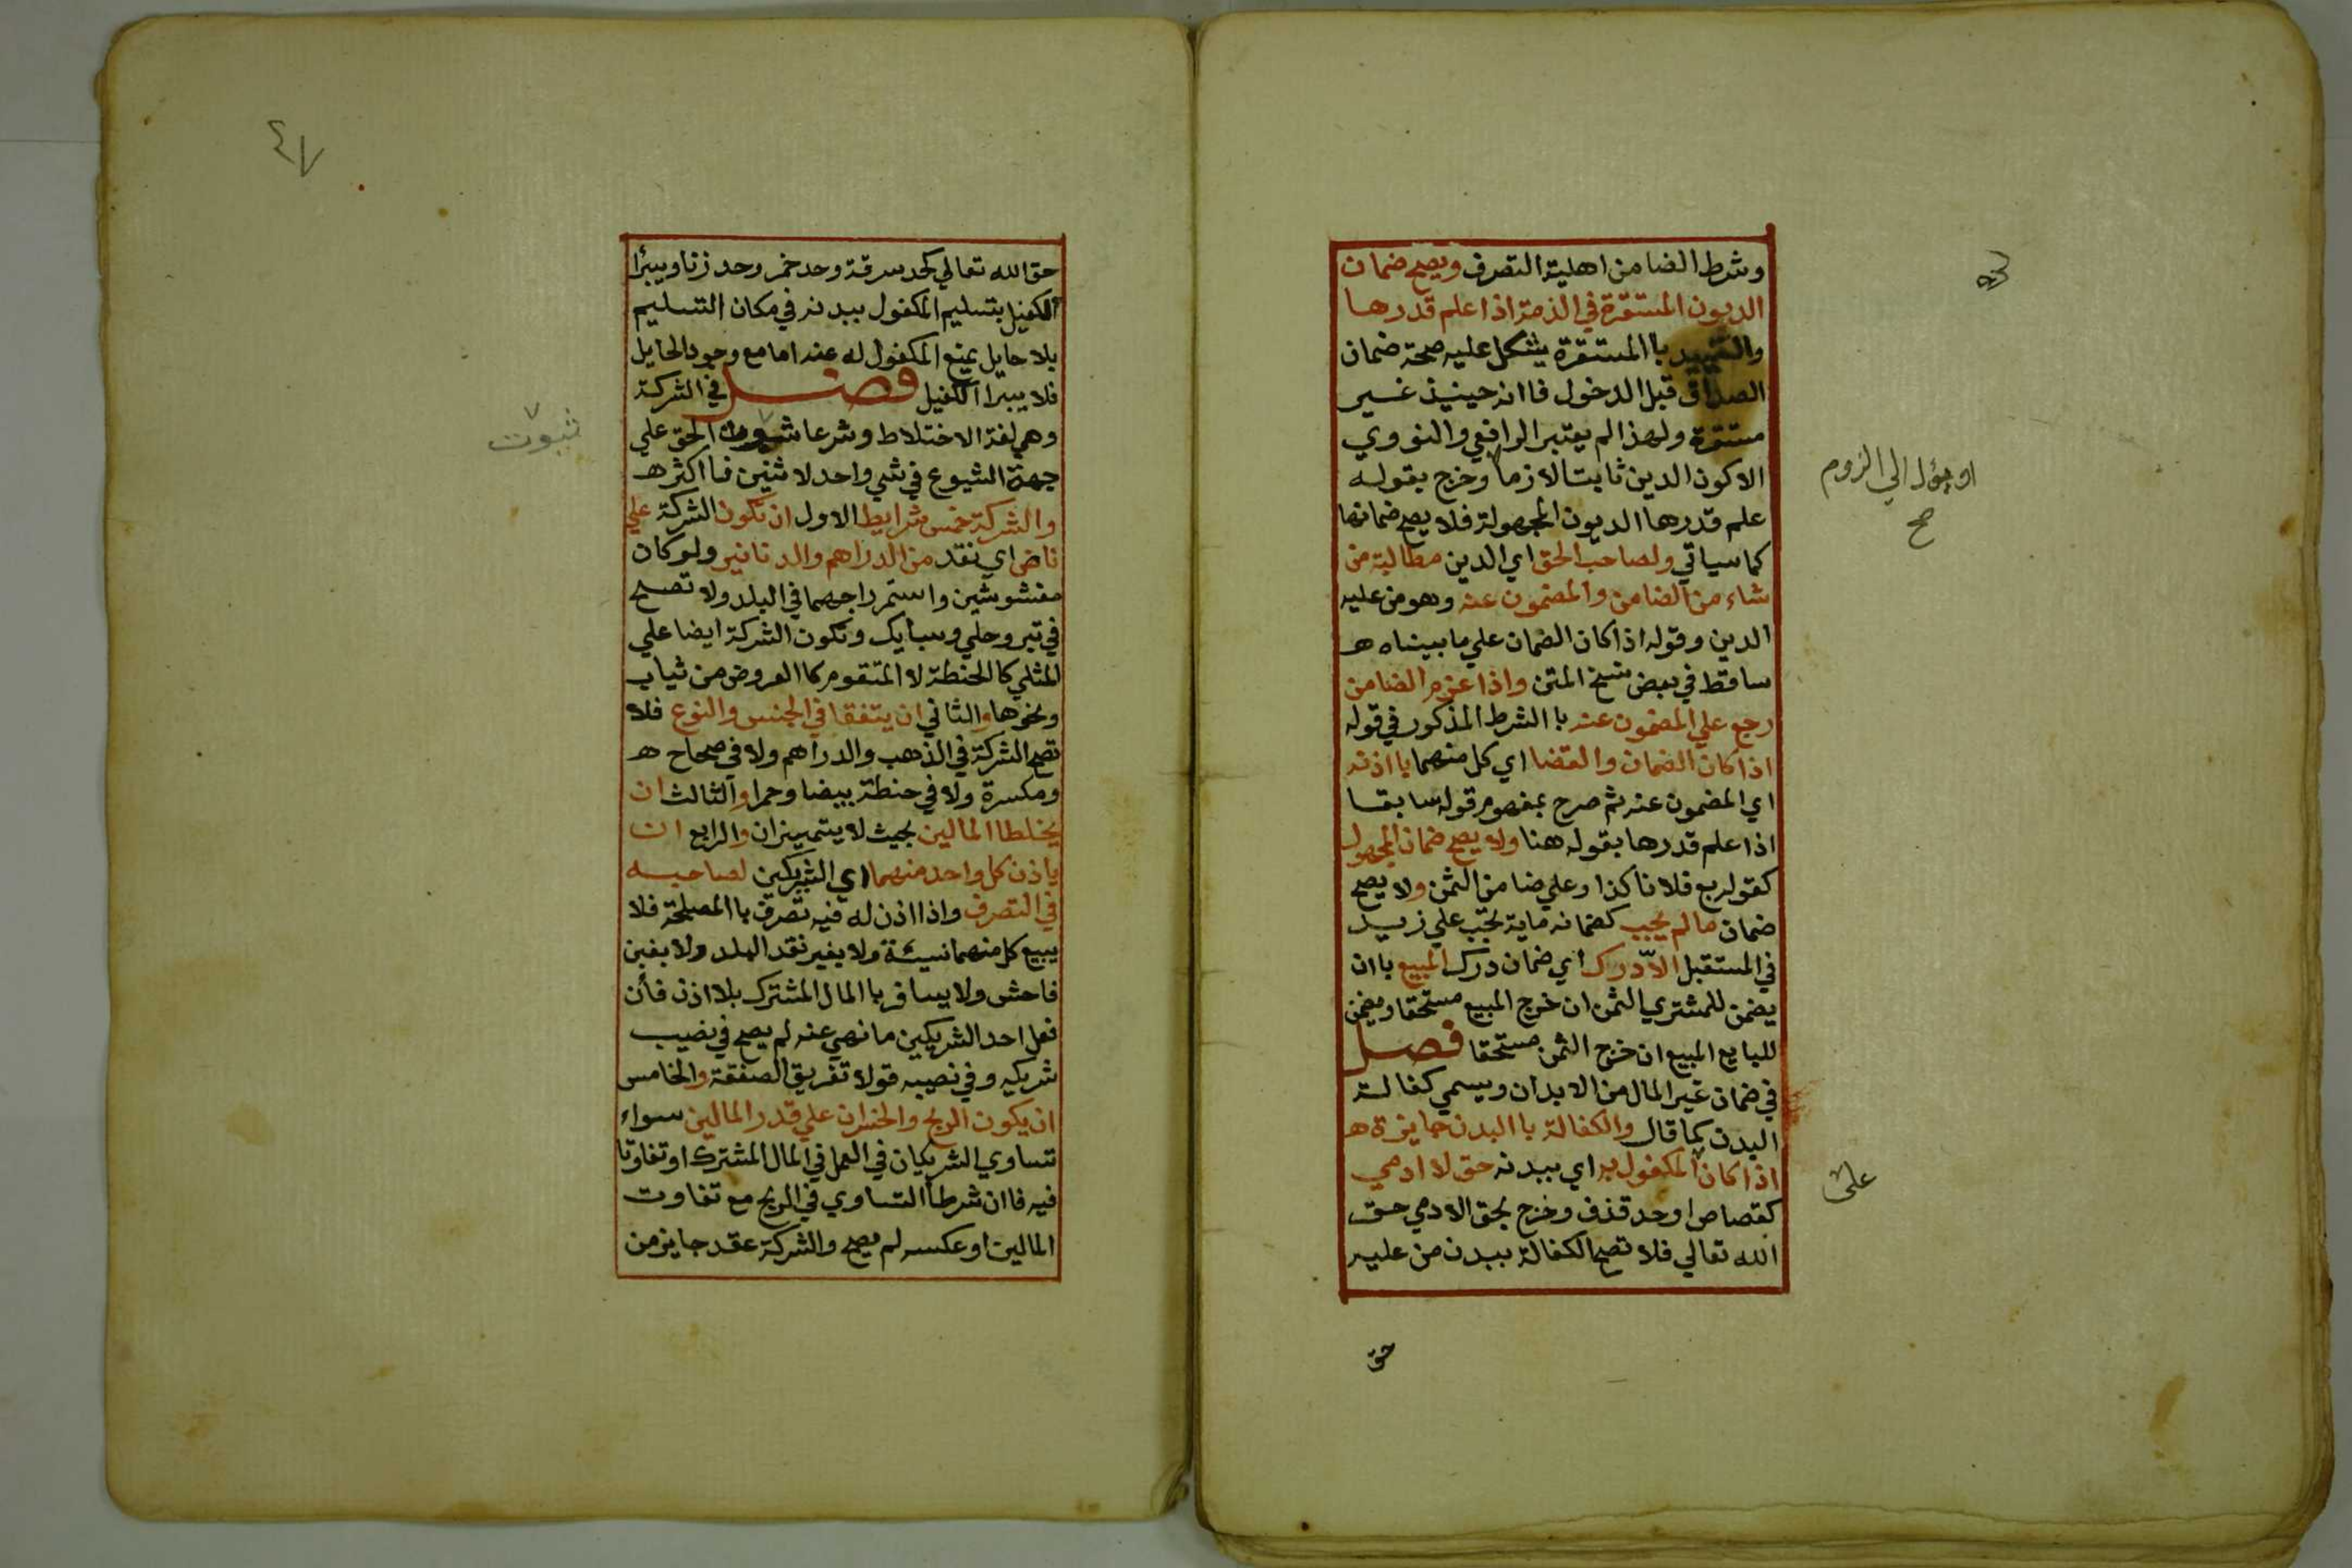 وشرط الضامن اهلية التصرف ويصح ضمان
الديون المستقرة في الذمة اذا علم قدرها
والتقييد باالمستقرة يشكل عليه صحة ضمان
الصداق قبل الدخول فاانه حينيذ غير
مستقرة ولهذا لم يعتبر الرافعي والنووي
الا كون الدين ثابتا لازما وخرج بقوله
او يؤل الي الزوم
صح
علم قدرها الديون المجهولة فلا يصح ضمانها
كما سياتي ولصاحب الحق اي الدين مطالبة من
شاء من الضامن والمضمون عنه وهو من عليه
الدين وقوله اذا كان الضمان علي ما بيناه هـ
ساقط في بعض نسخ المتن واذا غرم الضامن
رجع علي المضمون عنه باالشرط المذكور في قوله
اذا كان الضمان والقضا اي كل منهما بااذنه
اي المضمون عنه ثم صرح بمفهوم قوله سابقا
اذا علم قدرها بقوله هنا ولا يصح ضمان المجهول
كقوله بع فلانا كذا وعلي ضامن الثمن ولا يصح
ضمان ما لم يجب كضمانه ماية تجب علي زيد
في المستقبل الا درك اي ضمان درك المبيع باان
يضمن للمشتري الثمن ان خرج المبيع مستحقا ويضمن
للبايع المبيع ان خرج الثمن مستحقا فصل
في ضمان غير المال من الابدان ويسمي كفالة
البدن كما قال والكفالة باالبدن جايزة هـ
اذا كان المكفول به اي ببدنه حق لادمي
على
كقصاص او حد قذف وخرج بحق الادمي حق
الله تعالي فلا تصح الكفالة ببدن من عليه
حق
٤٧
حق الله تعالي كحد سرقة وحد خمر وحد زنا ويبرأ
الكفيل بتسليم المكفول ببدنه في مكان التسليم
بلا حايل يمنع المكفول له عنه اما مع وجود الحايل
فلا يبرا الكفيل فصل في الشركة
وهي لغة الاختلاط وشرعا ثبوت الحق علي
ثبوت
جهة الشيوع في شي واحد لاثنين فااكثر هـ
والشركة خمس شرايط الاول ان تكون الشركة علي
ناض اي نقد من الدراهم والدنانير ولو كان
مغشوشين واستمر راجهما في البلد ولا تصح
في تبر وحلي وسبايك وتكون الشركة ايضا علي
المثلي كاالحنطة لا المتقوم كاالعروض من ثياب
ونحوها والثاني ان يتفقا في الجنس والنوع فلا
تصح الشركة في الذهب والدراهم ولا في صحاح هـ
ومكسرة ولا في حنطة بيضا وحمرا والثالث ان
يخلطا المالين بحيث لا يتميزان والرابع ان
ياذن كل واحد منهما اي الشريكين لصاحبه
في التصرف واذا اذن له فيه تصرف باالمصلحة فلا
يبيع كل منهما نسيئة ولا بغير نقد البلد ولا بغبن
فاحش ولا يسافر باالمال المشترك بلا اذن فأن
فعل احد الشريكين ما نهي عنه لم يصح في نصيب
شريكه وفي نصيبه قولا تفريق الصفقة والخامس
ان يكون الربح والخسران علي قدر المالين سواء
تساوي الشريكان في العمل في المال المشترك او تفاوتا
فيه فاان شرطا التساوي في الربح مع تفاوت
المالين او عكسه لم يصح والشركة عقد جايز من